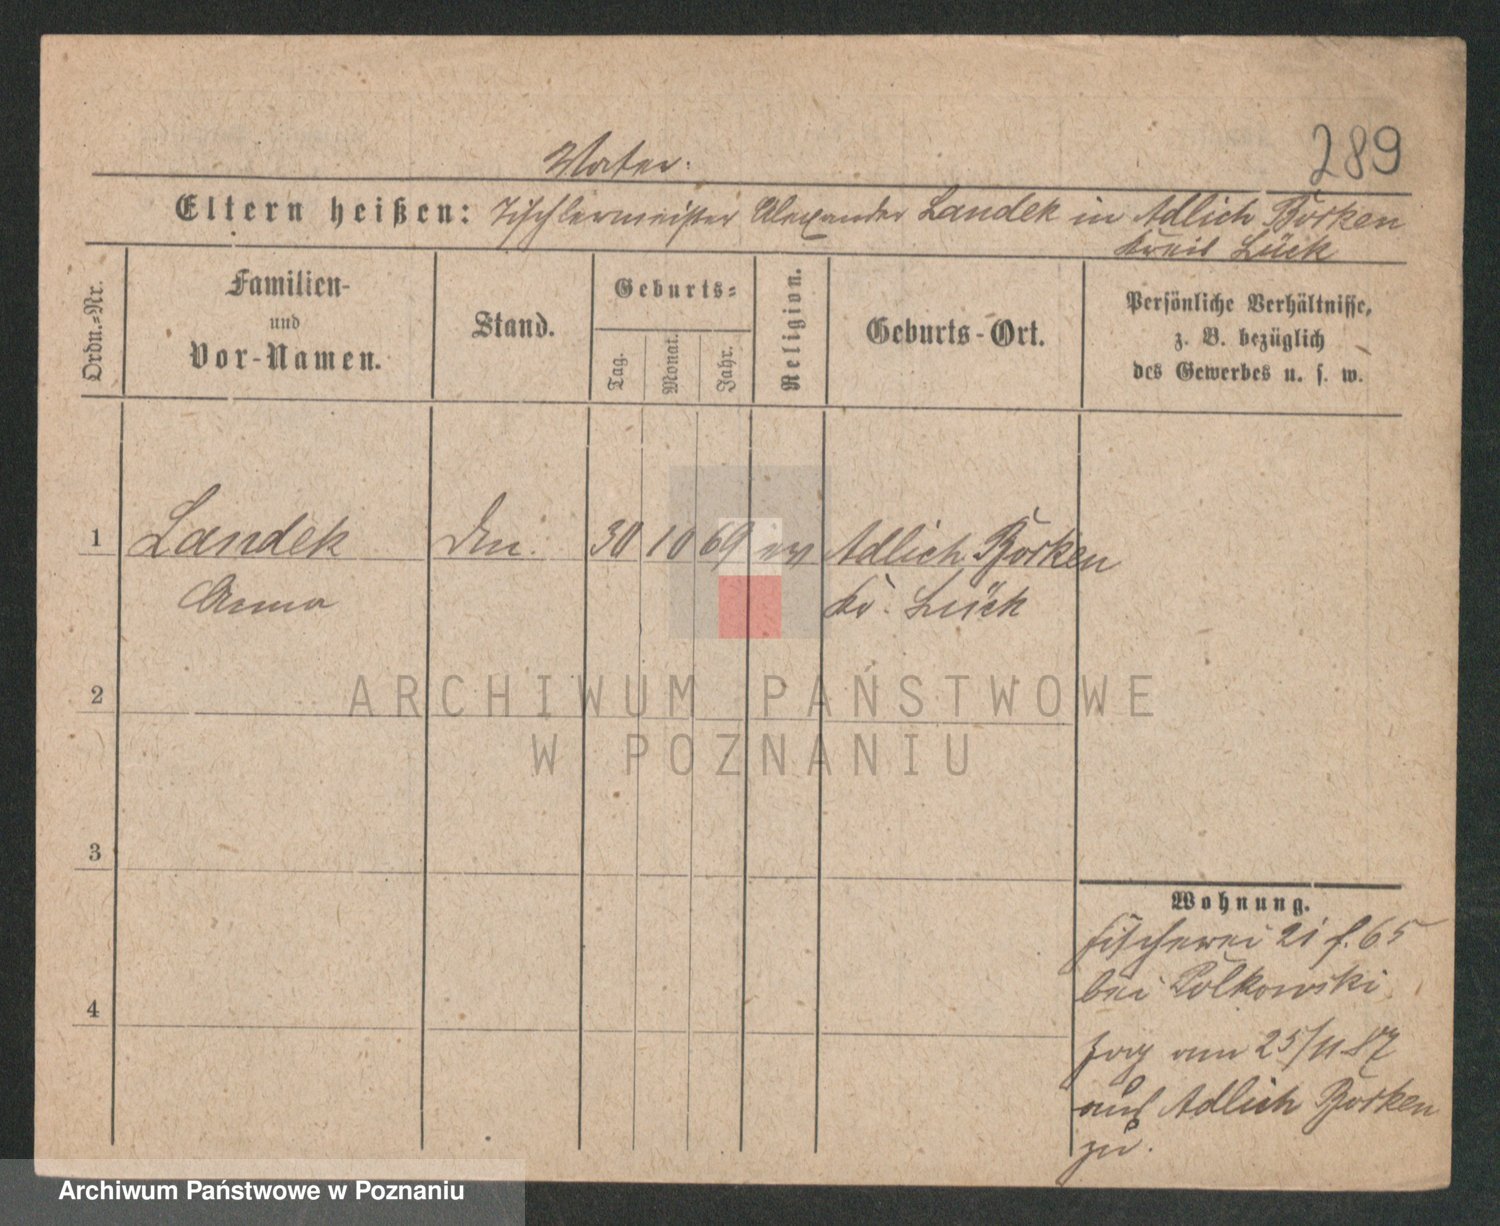 289
Vater:
Eltern heißen: Tischlermeister Alexander Landek in Adlich Borken
Kreis Lück
Ordn.=Nr.
Familien-
und
Vor-Namen.
Stand.
Geburts=
Tag.
Monat.
Jahr.
Religion.
Geburts-Ort.
Persönliche Verhältnisse,
z. B. bezüglich
des Gewerbes u. s. w.
1 Landek 30 10 69 ev Adlich Borken
Anna Kr. Lück
2
3
4
Wohnung.
Fischerei 21 f. 65
bei Polkowski
Zog am 25/11 87
auf Adlich Borken
zu.
ARCHIWUM PAŃSTWOWE
W POZNANIU
Archiwum Państwowe w Poznaniu